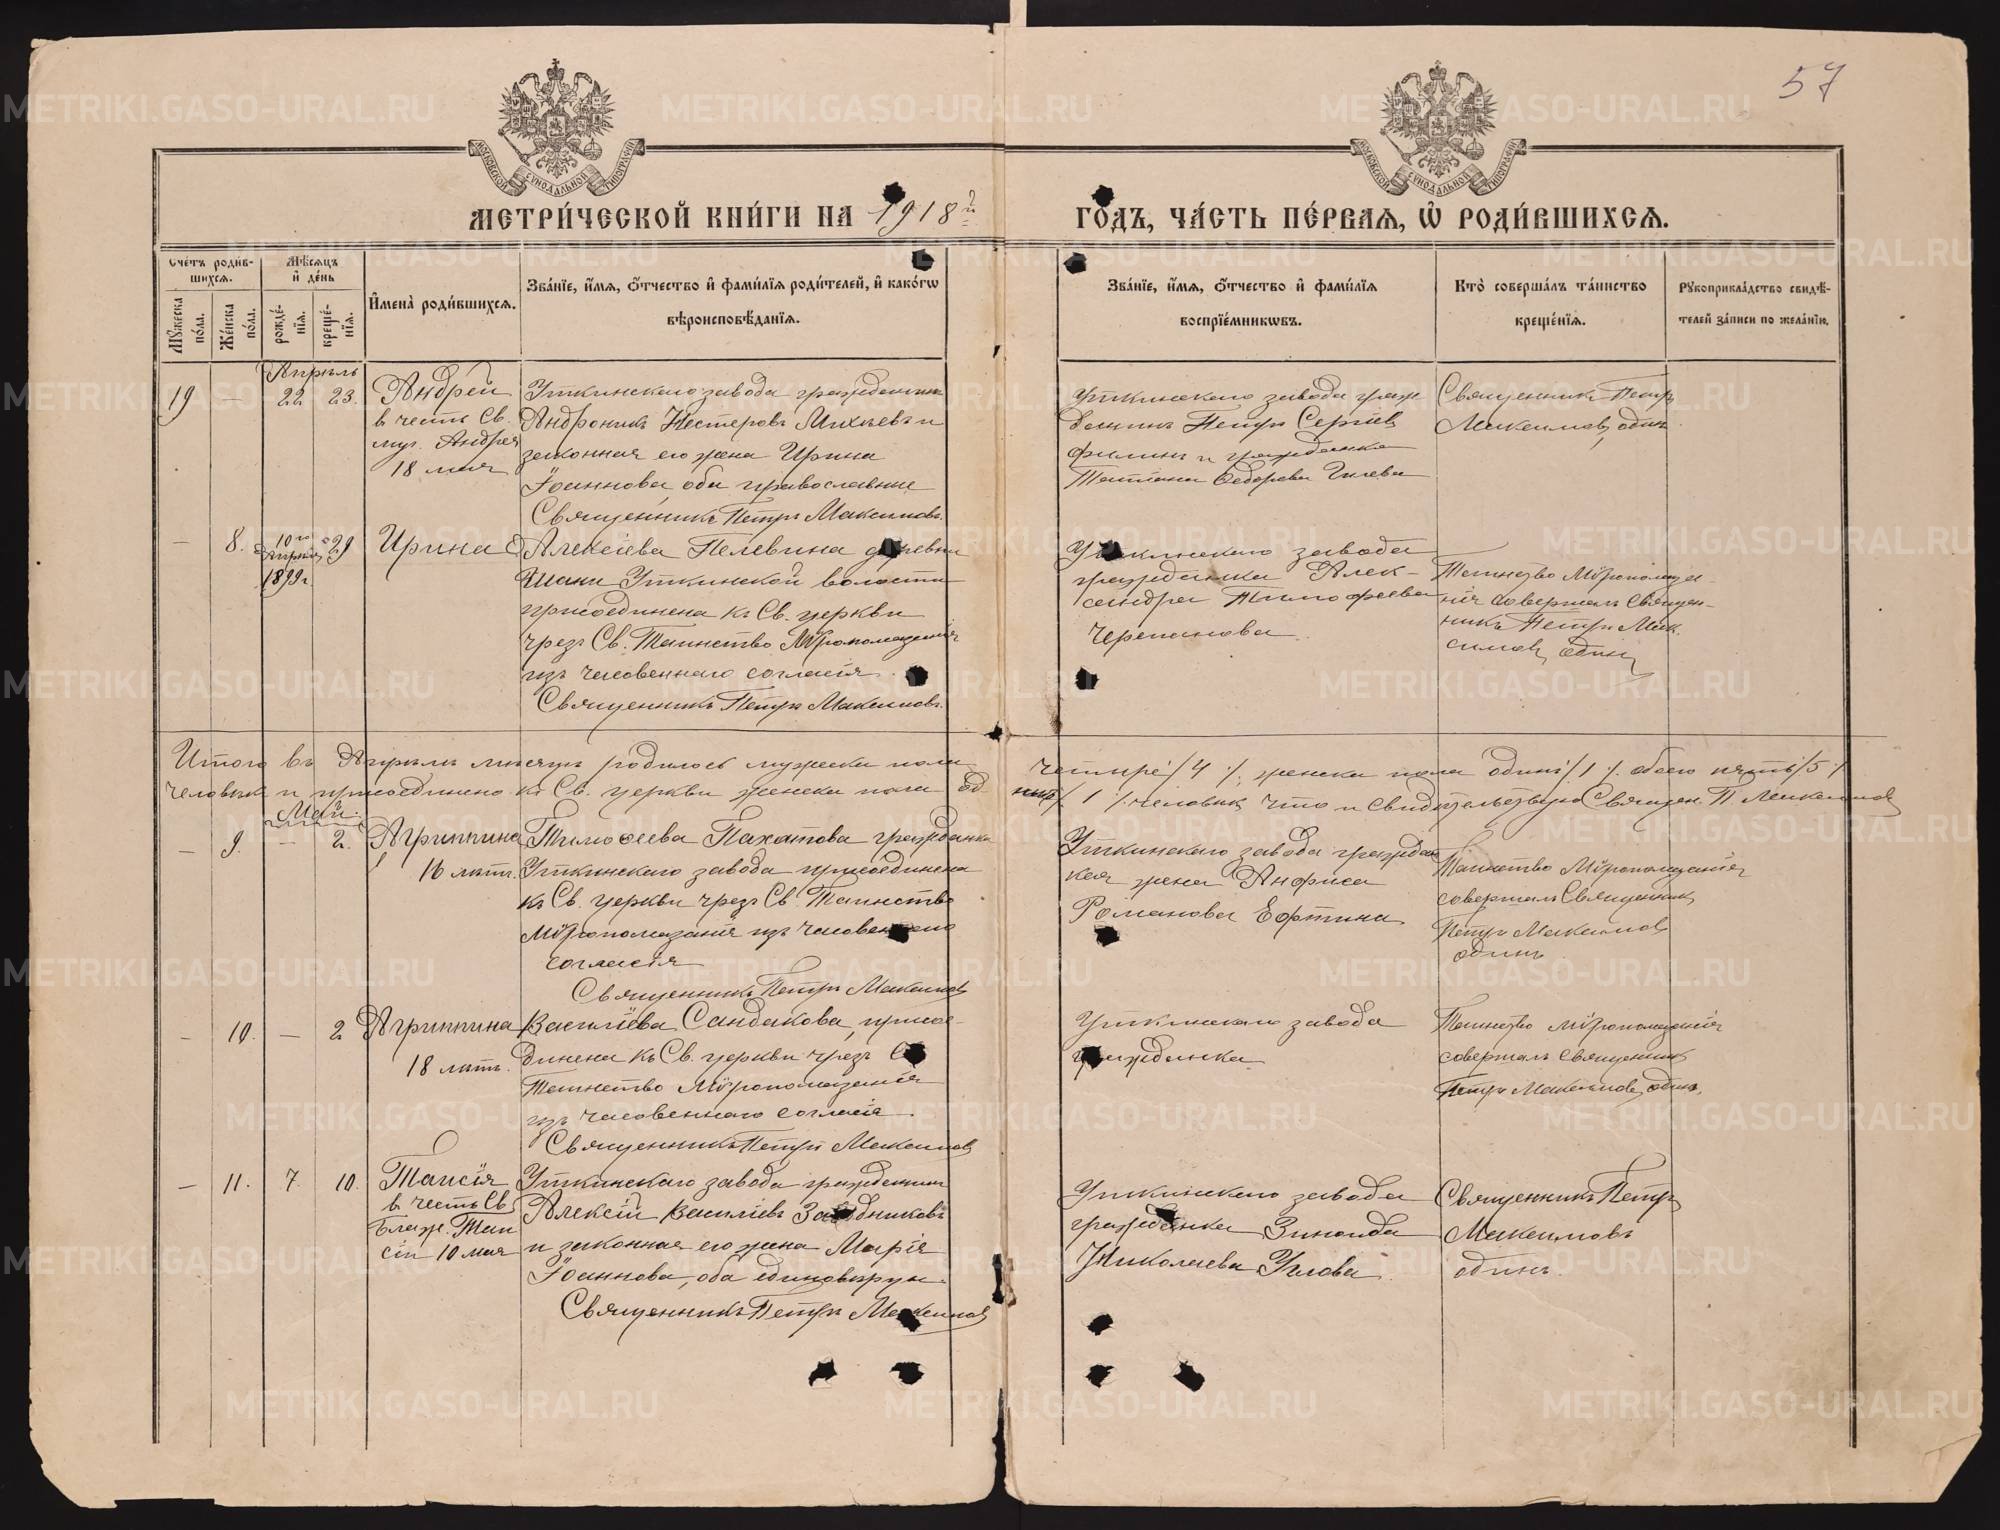 57
МОСКОВСКОЙ СѴНОДАЛЬНОЙ ТИПОГРАФІИ
МОСКОВСКОЙ СѴНОДАЛЬНОЙ ТИПОГРАФІИ
МЕТРИ́ЧЕСКОЙ КНИ́ГИ НА 1918й ГО́ДЪ, ЧА́СТЬ ПЕ́РВАЯ, Ѡ҆ РОДИ́ВШИХСЯ.
Сче́тъ роди́вшихся.
Мꙋжеска по́ла.
Же́нска по́ла.
Мѣ́сяцъ и҆ де́нь
рожде́нїя.
креще́нїя.
И҆мена̀ роди́вшихся.
Зва́нїе, и҆́мя, ѻ҆́тчество и҆ фами́лїя роди́телей, и҆ како́гѡ
вѣроисповѣ́данїя.
Зва́нїе, и҆́мя, ѻ҆́тчество и҆ фами́лїя
воспрїе́мникѡвъ.
Кто̀ соверша́лъ та́инство
креще́нїя.
Рꙋкоприкла́дство свидѣ́-
телей за́писи по жела́нїю.
Апрѣль
19 — 22 23.
Андрей
в честь Св.
муч. Андрея
18 мая
Уткинскаго завода гражданинъ
Андроникъ Нестеровъ Михѣевъ и
законная его жена Ирина
Іоаннова, оба православные
Священникъ Петръ Максимовъ.
Уткинскаго завода граж
данинъ Петръ Сергіев
Филинъ и гражданка
Татіана Ѳедорова Гилева
Священникъ Петръ
Максимов, один.
— 8. 10го Апрѣля 1899г. 29
Ирина
Алексіева Пелевина деревни
Уткинской волости
присоединена къ Св. церкви
чрезъ Св. Таинство Мѵропомазанія
изъ часовеннаго согласія.
Священникъ Петръ Максимовъ.
Уткинскаго завода
гражданка Алек-
сандра Тимофеева
Черепанова
Таинство Мѵропомаза-
нія совершалъ Священ-
никъ Петръ Мак
симов, один
Итого въ Апрѣлѣ мѣсяцѣ родилось мужеска пола четыре /4/, женска пола одинъ /1/, обоего пять /5/
человѣкъ и присоединено къ Св. церкви женска пола од- /1/ человѣкъ, что и свидѣтельствую Священ. П. Максимов
Май.
— 9. — 2.
Агриппина
16 лѣтъ.
Тимоѳеева Пахатова гражданка
Уткинскаго завода присоединена
къ Св. церкви чрезъ Св. Таинство
Мѵропомазанія изъ часовеннаго
согласія
Священникъ Петръ Максимов
Уткинскаго завода граждан
кая жена Анфиса
Романова Ефтина
Таинство Мѵропомазанія
совершалъ Священник
Петръ Максимов
одинъ
— 10. — 2
Агриппина
18 лѣтъ.
Василіева Сандакова, присое-
динена къ Св. церкви чрезъ Св
Таинство Мѵропомазанія
изъ часовеннаго согласія
Священникъ Петръ Максимов
Уткинскаго завода
гражданка
Таинство Мѵропомазанія
совершалъ Священник
Петръ Максимов, один.
— 11. 7. 10.
Таисія
в честь Св
Блаж. Таи
сіи 10 мая
Уткинскаго завода гражданин
Алексій Василіевъ
и законная его жена Марія
Іоаннова, оба единовѣрцы.
Священникъ Петръ Максимов
Уткинскаго завода
гражданка Зинаида
Николаева Углова.
Священникъ Петръ
Максимовъ
одинъ.
METRIKI.GASO-URAL.RU